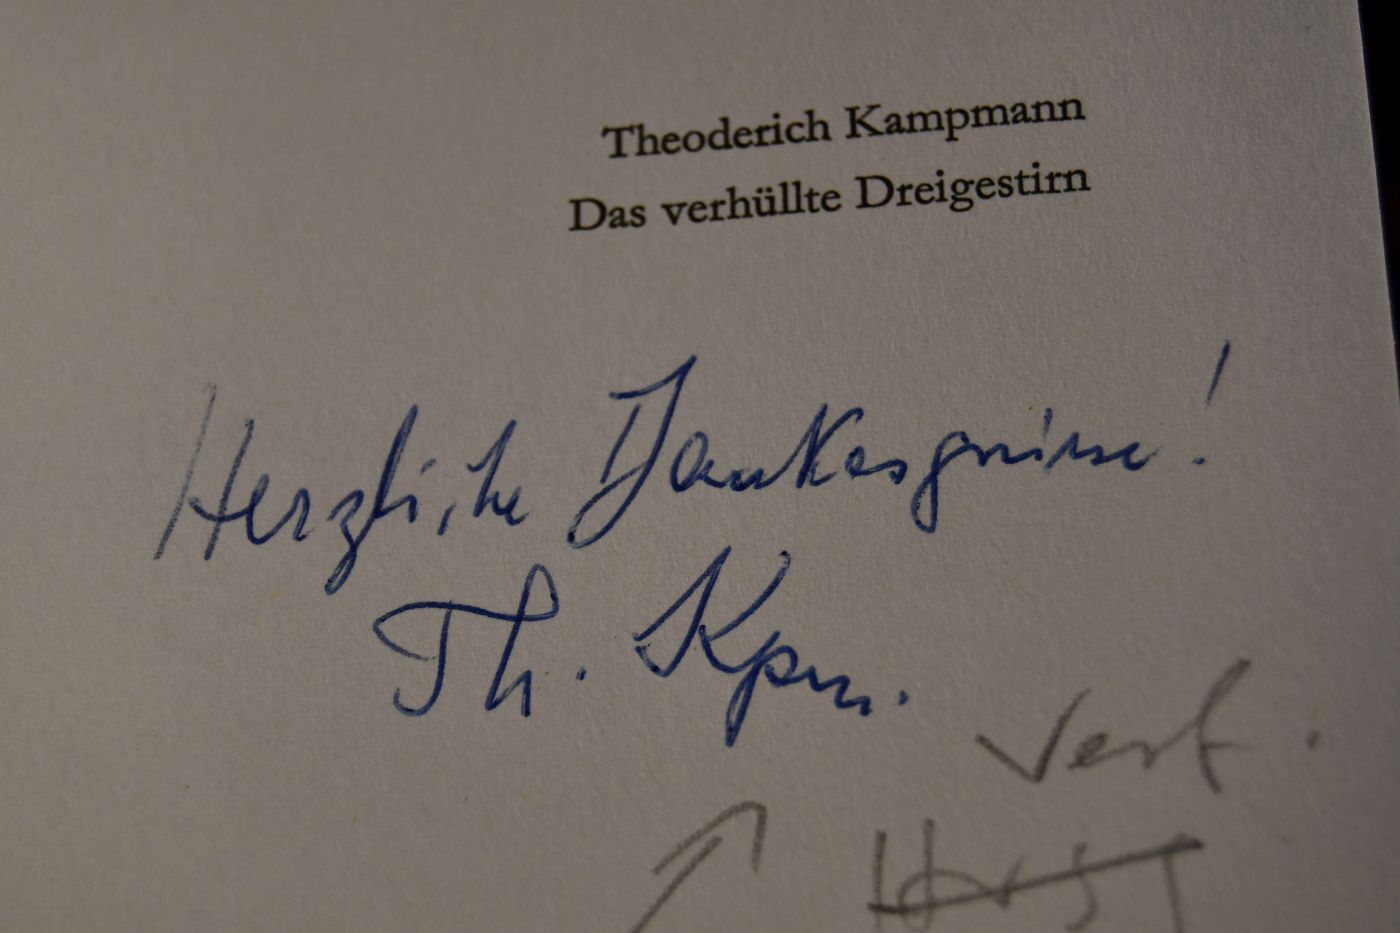 Theoderich Kampmann
Das verhüllte Dreigestirn
Herzliche Dankesgrüsse!
Th. Kpm.
Verf.